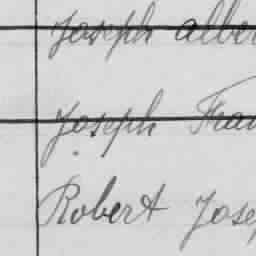 Joseph alber
Joseph Fran
Robert Josep